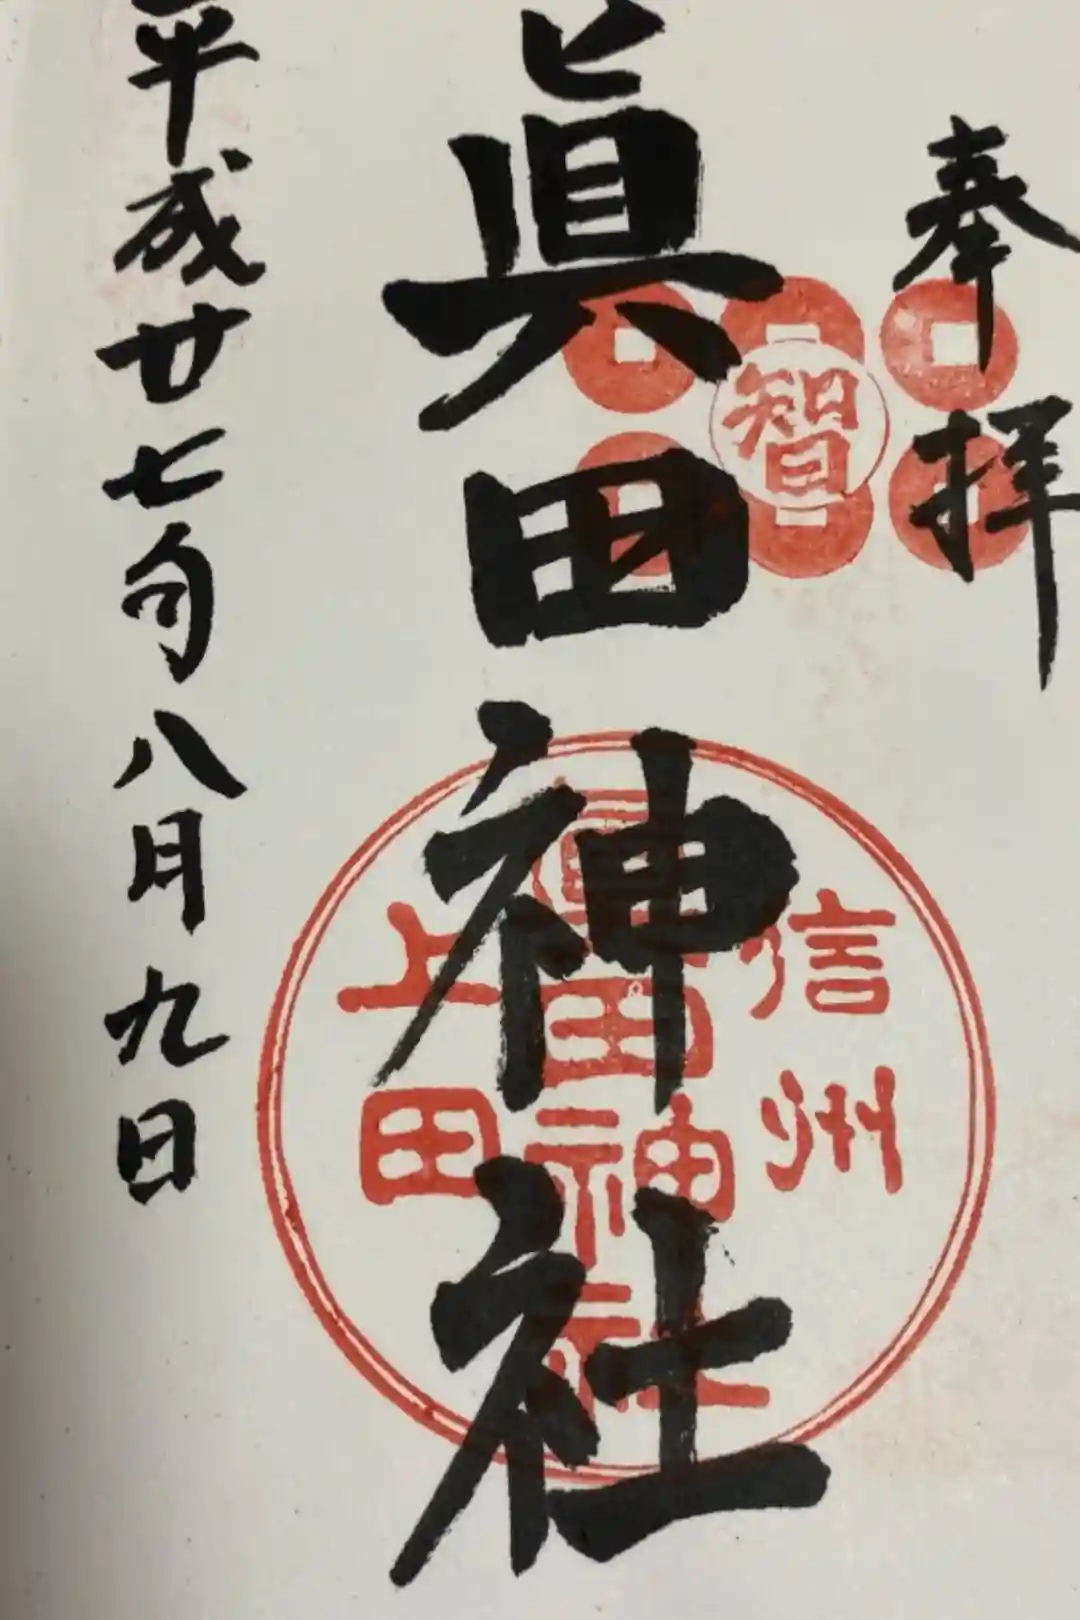 奉拝
智
眞田神社
信州
眞田神社
上田
平成廿七年八月九日